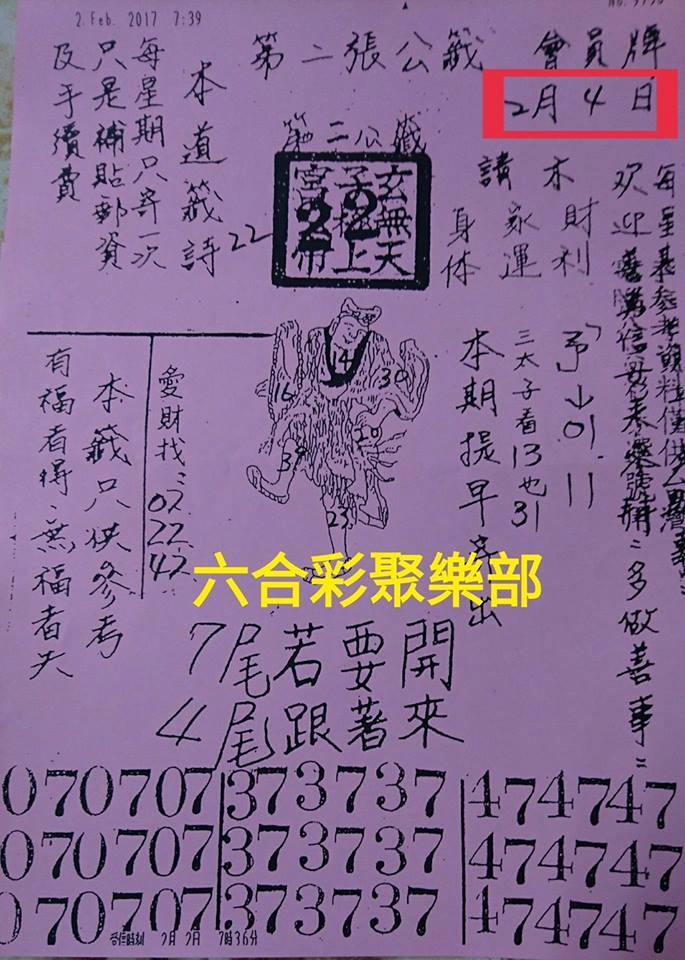 2. Feb. 2017 7:39
第二張公籤 會員牌
2月4日
每星期只寄一次
只是補貼郵資
及手續費
本道籤詩
22
第二公籤
玄無天
子 上
宮 帝
22
請木財利
家運
身体
欢迎
多做善事
三太子看13也31
01.11
本期提早寄出
14
16
30
20
23
愛財找:
07
22
42
本籤只供參考
有福者得、無福者失
六合彩聚樂部
7尾若要開
4尾跟著來
070707 373737 474747
070707 373737 474747
070707 373737 474747
受信時刻 2月 2日 7時36分